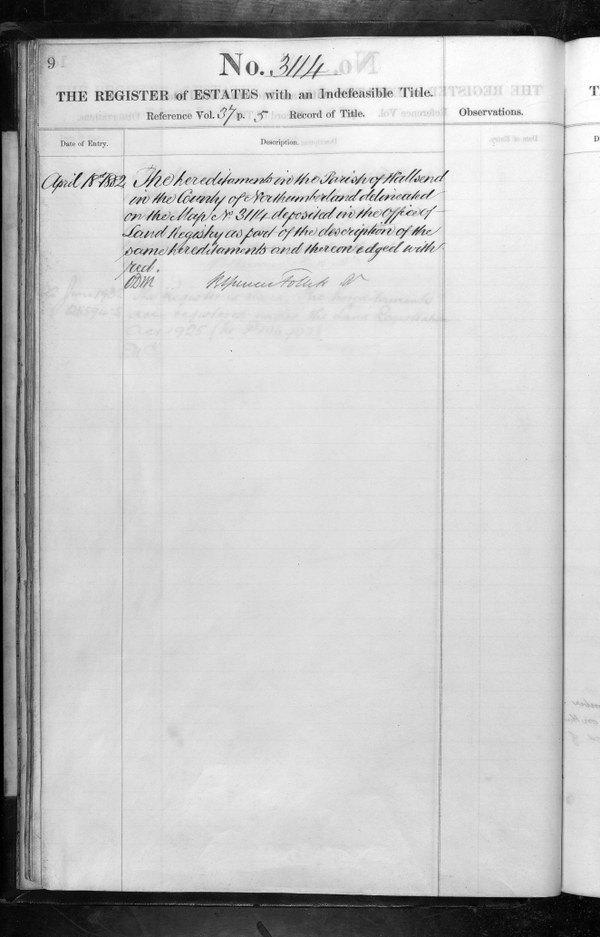 9
No. 3114
THE REGISTER of ESTATES with an Indefeasible Title.
Reference Vol. 37 p. 5 Record of Title.
Observations.
Date of Entry.
Description.
April 18th 1882
The hereditaments in the Parish of Wallsend
in the County of Northumberland delineated
on the Map No 3114 deposited in the Office of
Land Registry as part of the description of the
same hereditaments and thereon edged with
red.
are registered under the Land Registration
Act 1925